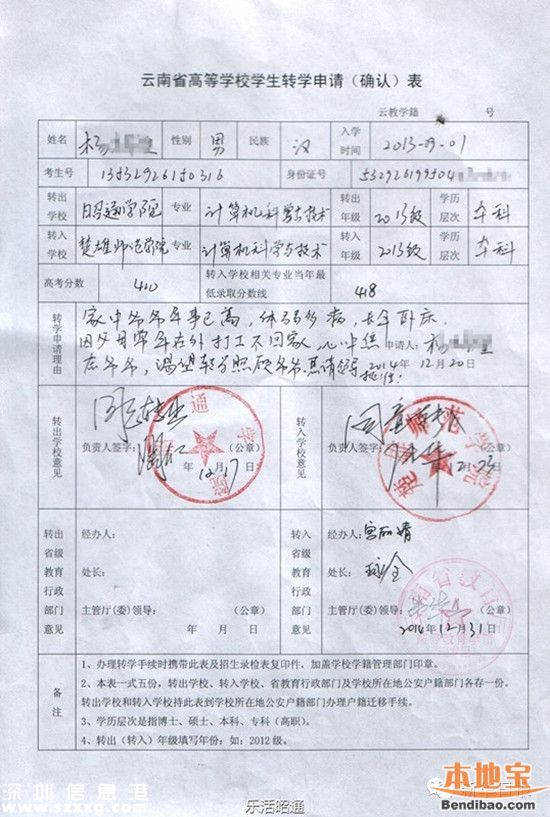 云南省高等学校学生转学申请（确认）表
云教学籍 号
姓名 杨 性别 男 民族 汉 入学时间 2013-09-01
考生号 13532926150316 身份证号 532926199504
转出学校 昭通学院 专业 计算机科学与技术 转出年级 2013级 学历层次 本科
转入学校 楚雄师范学院 专业 计算机科学与技术 转入年级 2013级 学历层次 本科
高考分数 410 转入学校相关专业当年最低录取分数线 418
转学申请理由
家中爷爷年事已高，体弱多病，长年卧床
因父母常年在外打工不回家，心中焦 申请人：杨
虑爷爷，渴望转学照顾爷爷。恳请领导批准！ 2014年12月20日
转出学校意见 同意转出
负责人签字： （公章）
年 月 日 12.17
通 学 院
转入学校意见 同意
负责人签字： （公章）
12.23
楚 师范学院
转出省级教育行政部门意见
经办人：
处长：
主管厅(委)领导： （公章）
年 月 日
转入省级教育行政部门意见
经办人：
处长：
主管厅(委)领导： （公章）
2014年12月31日
省教育
备注
1、办理转学手续时携带此表及招生录检表复印件，加盖学校学籍管理部门印章。
2、本表一式五份，转出学校、转入学校、省教育行政部门及学校所在地公安户籍部门各存一份。
转出学校和转入学校持此表到学校所在地公安户籍部门办理户籍迁移手续。
3、学历层次是指博士、硕士、本科、专科（高职）。
4、转出（转入）年级填写年份：如：2012级。
深圳信息港
www.szxxg.com
乐活昭通
本地宝
Bendibao.com